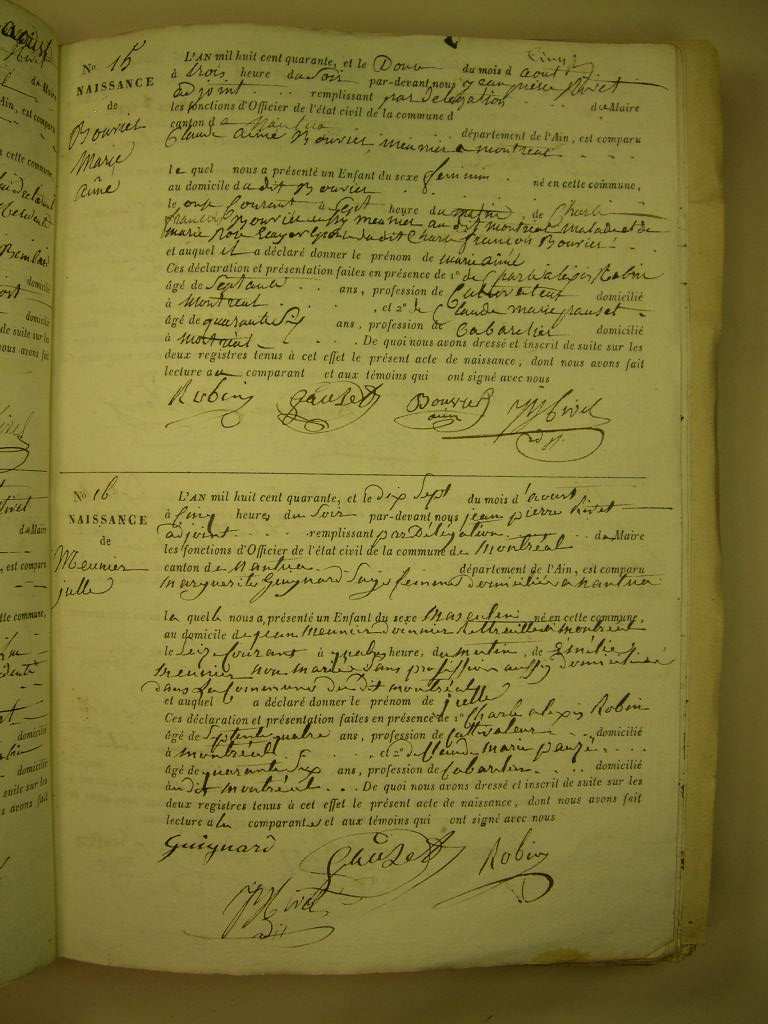 No 15
NAISSANCE
de
Bouvier
Marie
aîné
L'AN mil huit cent quarante, et le Douze du mois d'aout
à trois heure du Soir par-devant nous jean pierre Rivet
adjoint remplissant par délégation du Maire
les fonctions d'Officier de l'état civil de la commune d
canton de Nantua département de l'Ain, est comparu
Claude aimé Bouvier, meunier a montréal
le quel nous a présenté un Enfant du sexe feminin né en cette commune,
au domicile du dit Bouvier
le onze Courant à Sept heure du matin, de Charle
françois Bouvier aussy meunier au dit montreal malade et de
marie Rose Epouse du dit Charle françois Bouvier
et auquel il a déclaré donner le prénom de marie aîné
Ces déclaration et présentation faites en présence de 1º de Charle alexis Robin
âgé de Septante ans, profession de Cultivateur domicilié
à Montreal, et 2º de Claude marie gauset
âgé de quarante Six ans, profession de Cabaretier domicilié
à montréal De quoi nous avons dressé et inscrit de suite sur les
deux registres tenus à cet effet le présent acte de naissance, dont nous avons fait
lecture au comparant et aux témoins qui ont signé avec nous
Robin Gauset Bouvier aimé JP Rivet
adjt
No 16
NAISSANCE
de
Meunier
julle
L'AN mil huit cent quarante, et le dix Sept du mois d'aoust
à Cinq heures du Soir par-devant nous jean pierre Rivet
adjoint remplissant par Délégation du Maire
les fonctions d'Officier de l'état civil de la commune de Montréal
canton de Nantua département de l'Ain, est comparu
Marguerite Guignard Sage femme domiciliée a Nantua
la quelle nous a présenté un Enfant du sexe Masculin né en cette commune,
au domicile de jean Meunier montréal
le Seize Courant à quatre heures, du matin, de Emélie
meunier non mariée Sans profession aussy domiciliée
dans la Commune du Dit montréal
et auquel a déclaré donner le prénom de julle
Ces déclaration et présentation faites en présence de 1º Charle alexis Robin
âgé de Septente quatre ans, profession de Cultivateur domicilié
à montréal, et 2º de Claude marie
âgé de quarante Six ans, profession de Cabaretier domicilié
au dit montréal De quoi nous avons dressé et inscrit de suite sur les
deux registres tenus à cet effet le présent acte de naissance, dont nous avons fait
lecture a la comparante et aux témoins qui ont signé avec nous
Guignard Gauset Robin
JP Rivet
adjt